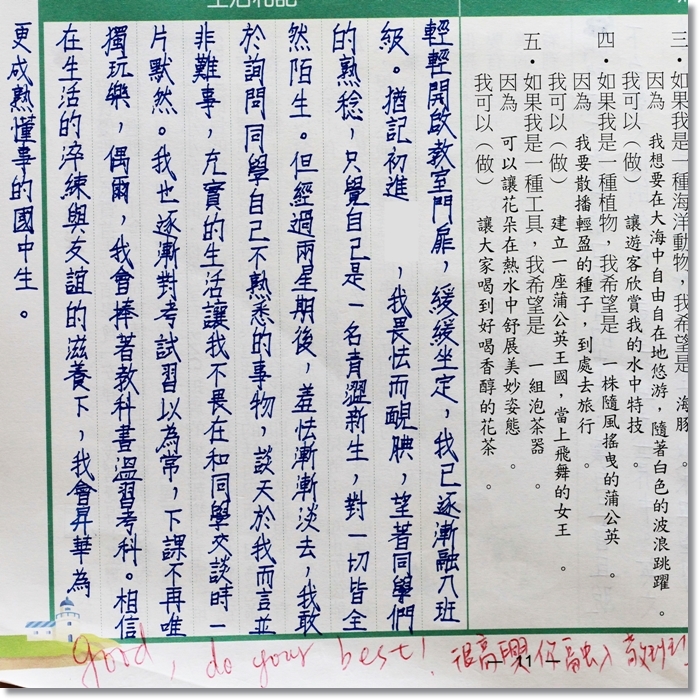 三‧如果我是一種海洋動物，我希望是 海豚。
因為 我想要在大海中自由自在地悠游，隨著白色的波浪跳躍。
我可以（做） 讓遊客欣賞我的水中特技。
四‧如果我是一種植物，我希望是 一株隨風搖曳的蒲公英。
因為 我要散播輕盈的種子，到處去旅行。
我可以（做） 建立一座蒲公英王國，當上飛舞的女王。
五‧如果我是一種工具，我希望是 一組泡茶器。
因為 可以讓花朵在熱水中舒展美妙姿態。
我可以（做） 讓大家喝到好喝香醇的花茶。
生活札記
輕輕開啟教室門扉，緩緩坐定，我已逐漸融入班
級。猶記初進 ，我畏怯而靦腆，望著同學們
的熟稔，只覺自己是一名青澀新生，對一切皆全
然陌生。但經過兩星期後，羞怯漸漸淡去，我敢
於詢問同學自己不熟悉的事物，談天於我而言並
非難事，充實的生活讓我不畏在和同學交談時一
片默然。我也逐漸對考試習以為常，下課不再唯
獨玩樂，偶爾，我會捧著教科書溫習考科。相信
在生活的淬練與友誼的滋養下，我會昇華為
更成熟懂事的國中生。
Good, do your best! 很高興你融入
— 11 —